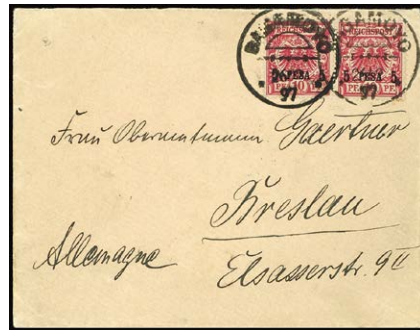 BAGAMOYO BAGAMOYO
REICHSPOST REICHSPOST
5 PESA 5
97 97
Frau Oberamtmann Gaertner
Breslau
Allemagne
Elsasserstr. 9II